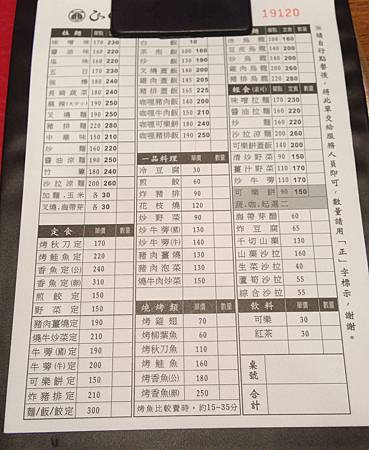 19120
拉麵 單點 定食 數量
味噌 170 230
醬油 160 220
塩味 160 220
五目 180 240
胡麻 180 240
長崎蔬菜 180 240
麻辣(大中小) 190 250
叉燒麵 200 260
豬排麵 200 260
中華 150 210
炒麵 160 220
醬油涼麵 200 260
竹簾 180 240
沙拉涼麵 200 260
加麵.玉米 各30
叉燒.海帶芽 各30
定食 單價 數量
烤秋刀定 170
烤鮭魚定 220
香魚定(公) 240
香魚定(卵) 310
煎餃定 150
野菜定 150
豬肉薑燒定 190
燒牛炒菜定 210
牛蒡(豬)定 190
牛蒡(牛)定 200
可樂餅定 150
炸豬排定 210
麵/飯/餃定 300
白飯 10
茶泡飯 100 160
炒飯 100
叉燒蓋飯 180 240
豬排蓋飯 180 240
咖哩飯 130 190
咖哩豬肉飯 150 210
咖哩牛肉飯 150 210
咖哩可樂餅 180 240
咖哩豬排飯 190 250
一品料理 單價 數量
冷豆腐 30
煎餃 60
炸豬排 90
花枝燒 120
炒野菜 90
炒牛蒡(豬) 130
炒牛蒡(牛) 140
豬肉薑燒 130
豬肉泡菜 130
燒牛肉炒菜 150
燒烤類 單價 數量
烤雞翅 70
烤柳葉魚 60
烤秋刀魚 110
烤鮭魚 160
烤香魚(公) 180
烤香魚(卵) 250
烤魚比較費時，約15-35分
輕食(素可) 單點 定食 數量
味噌拉麵 150 210
醬油拉麵 150 210
炒麵 140 200
沙拉涼麵 200 260
可樂餅蓋飯 150 210
清炒野菜 90 150
薑汁野菜 110 170
炒牛蒡 90 150
可樂餅 90 150
蔬.咖.起選二
海帶芽醋 60
炸豆腐 65
千切山藥 130
山藥沙拉 160
生菜沙拉 40
蘆筍沙拉 110
綜合沙拉 150
飲料 單價 數量
可樂 30
紅茶 30
桌號
合計
※請自行點餐後，將此單交給服務人員即可，數量請用「正」字標示，謝謝。